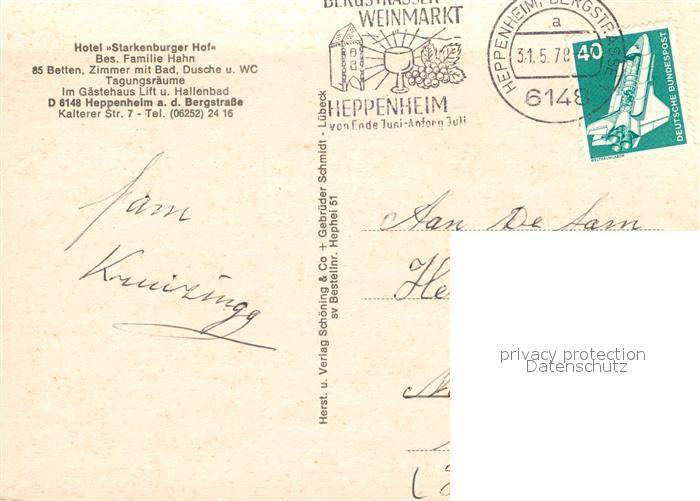 Hotel »Starkenburger Hof«
Bes. Familie Hahn
85 Betten, Zimmer mit Bad, Dusche u. WC
Tagungsräume
Im Gästehaus Lift u. Hallenbad
D 6148 Heppenheim a. d. Bergstraße
Kalterer Str. 7 - Tel. (06252) 24 16
BERGSTRÄSSER
WEINMARKT
HEPPENHEIM
von Ende Juni-Anfang Juli
HEPPENHEIM, BERGSTRASSE 1
a
31.5.78
6148
40
DEUTSCHE BUNDESPOST
WELTRAUMLABOR
Herst. u. Verlag Schöning & Co + Gebrüder Schmidt - Lübeck
sv Bestellnr. Hephei 51
fam
Kruizinga
Aan De fam
privacy protection
Datenschutz